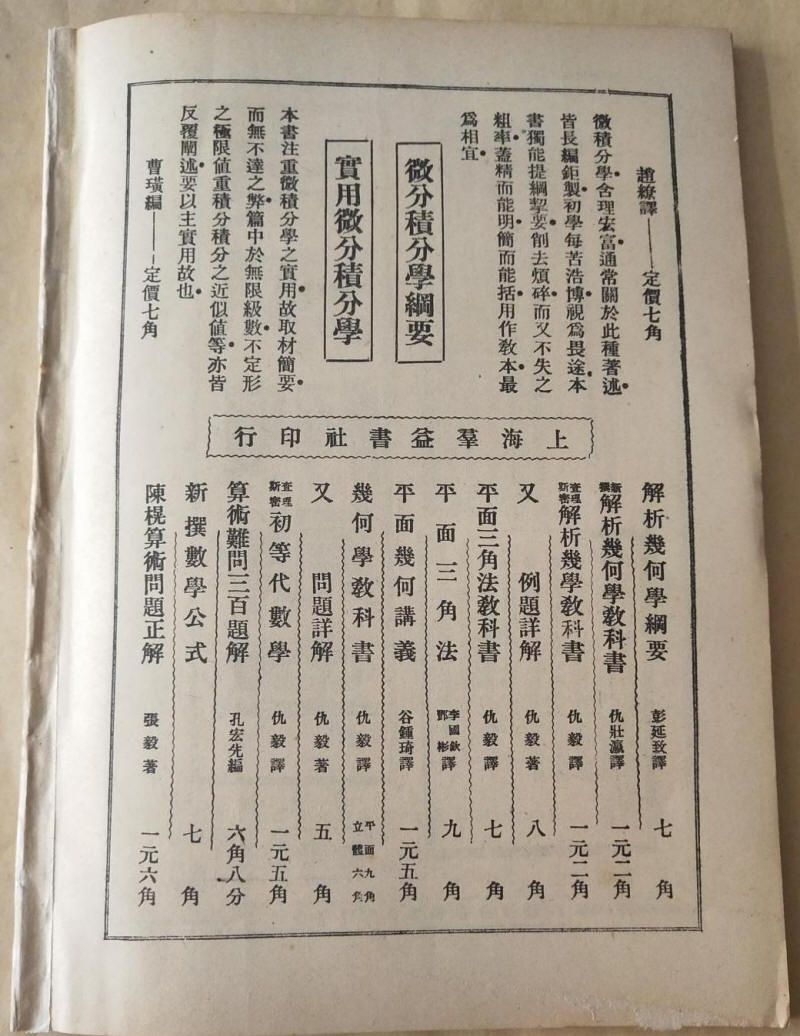 趙繚譯——定價七角
微積分學含理宏富通常關於此種著述
皆長編鉅製初學每苦浩博視爲畏途本
書獨能提綱挈要削去煩碎而又不失之
粗率蓋精而能明簡而能括用作教本最
爲相宜
微分積分學綱要
實用微分積分學
本書注重微積分學之實用故取材簡要
而無不達之弊篇中於無限級數不定形
之極限值重積分積分之近似值等亦皆
反覆闡述要以主實用故也
曹璜編——定價七角
上海羣益書社印行
解析幾何學綱要 彭延致譯 七角
新撰解析幾何學教科書 仇壯瀛譯 一元二角
查理斯密解析幾學教科書 仇毅譯 一元二角
又 例題詳解 仇毅著 八角
平面三角法教科書 仇毅譯 七角
平面三角法 李國欽 鄧彬譯 九角
平面幾何講義 谷鍾琦譯 一元五角
幾何學教科書 仇毅譯 平面九角 立體六角
又 問題詳解 仇毅著 五角
查理斯密初等代數學 仇毅譯 一元五角
算術難問三百題解 孔宏先編 六角八分
新撰數學公式 七角
陳榥算術問題正解 張毅著 一元六角